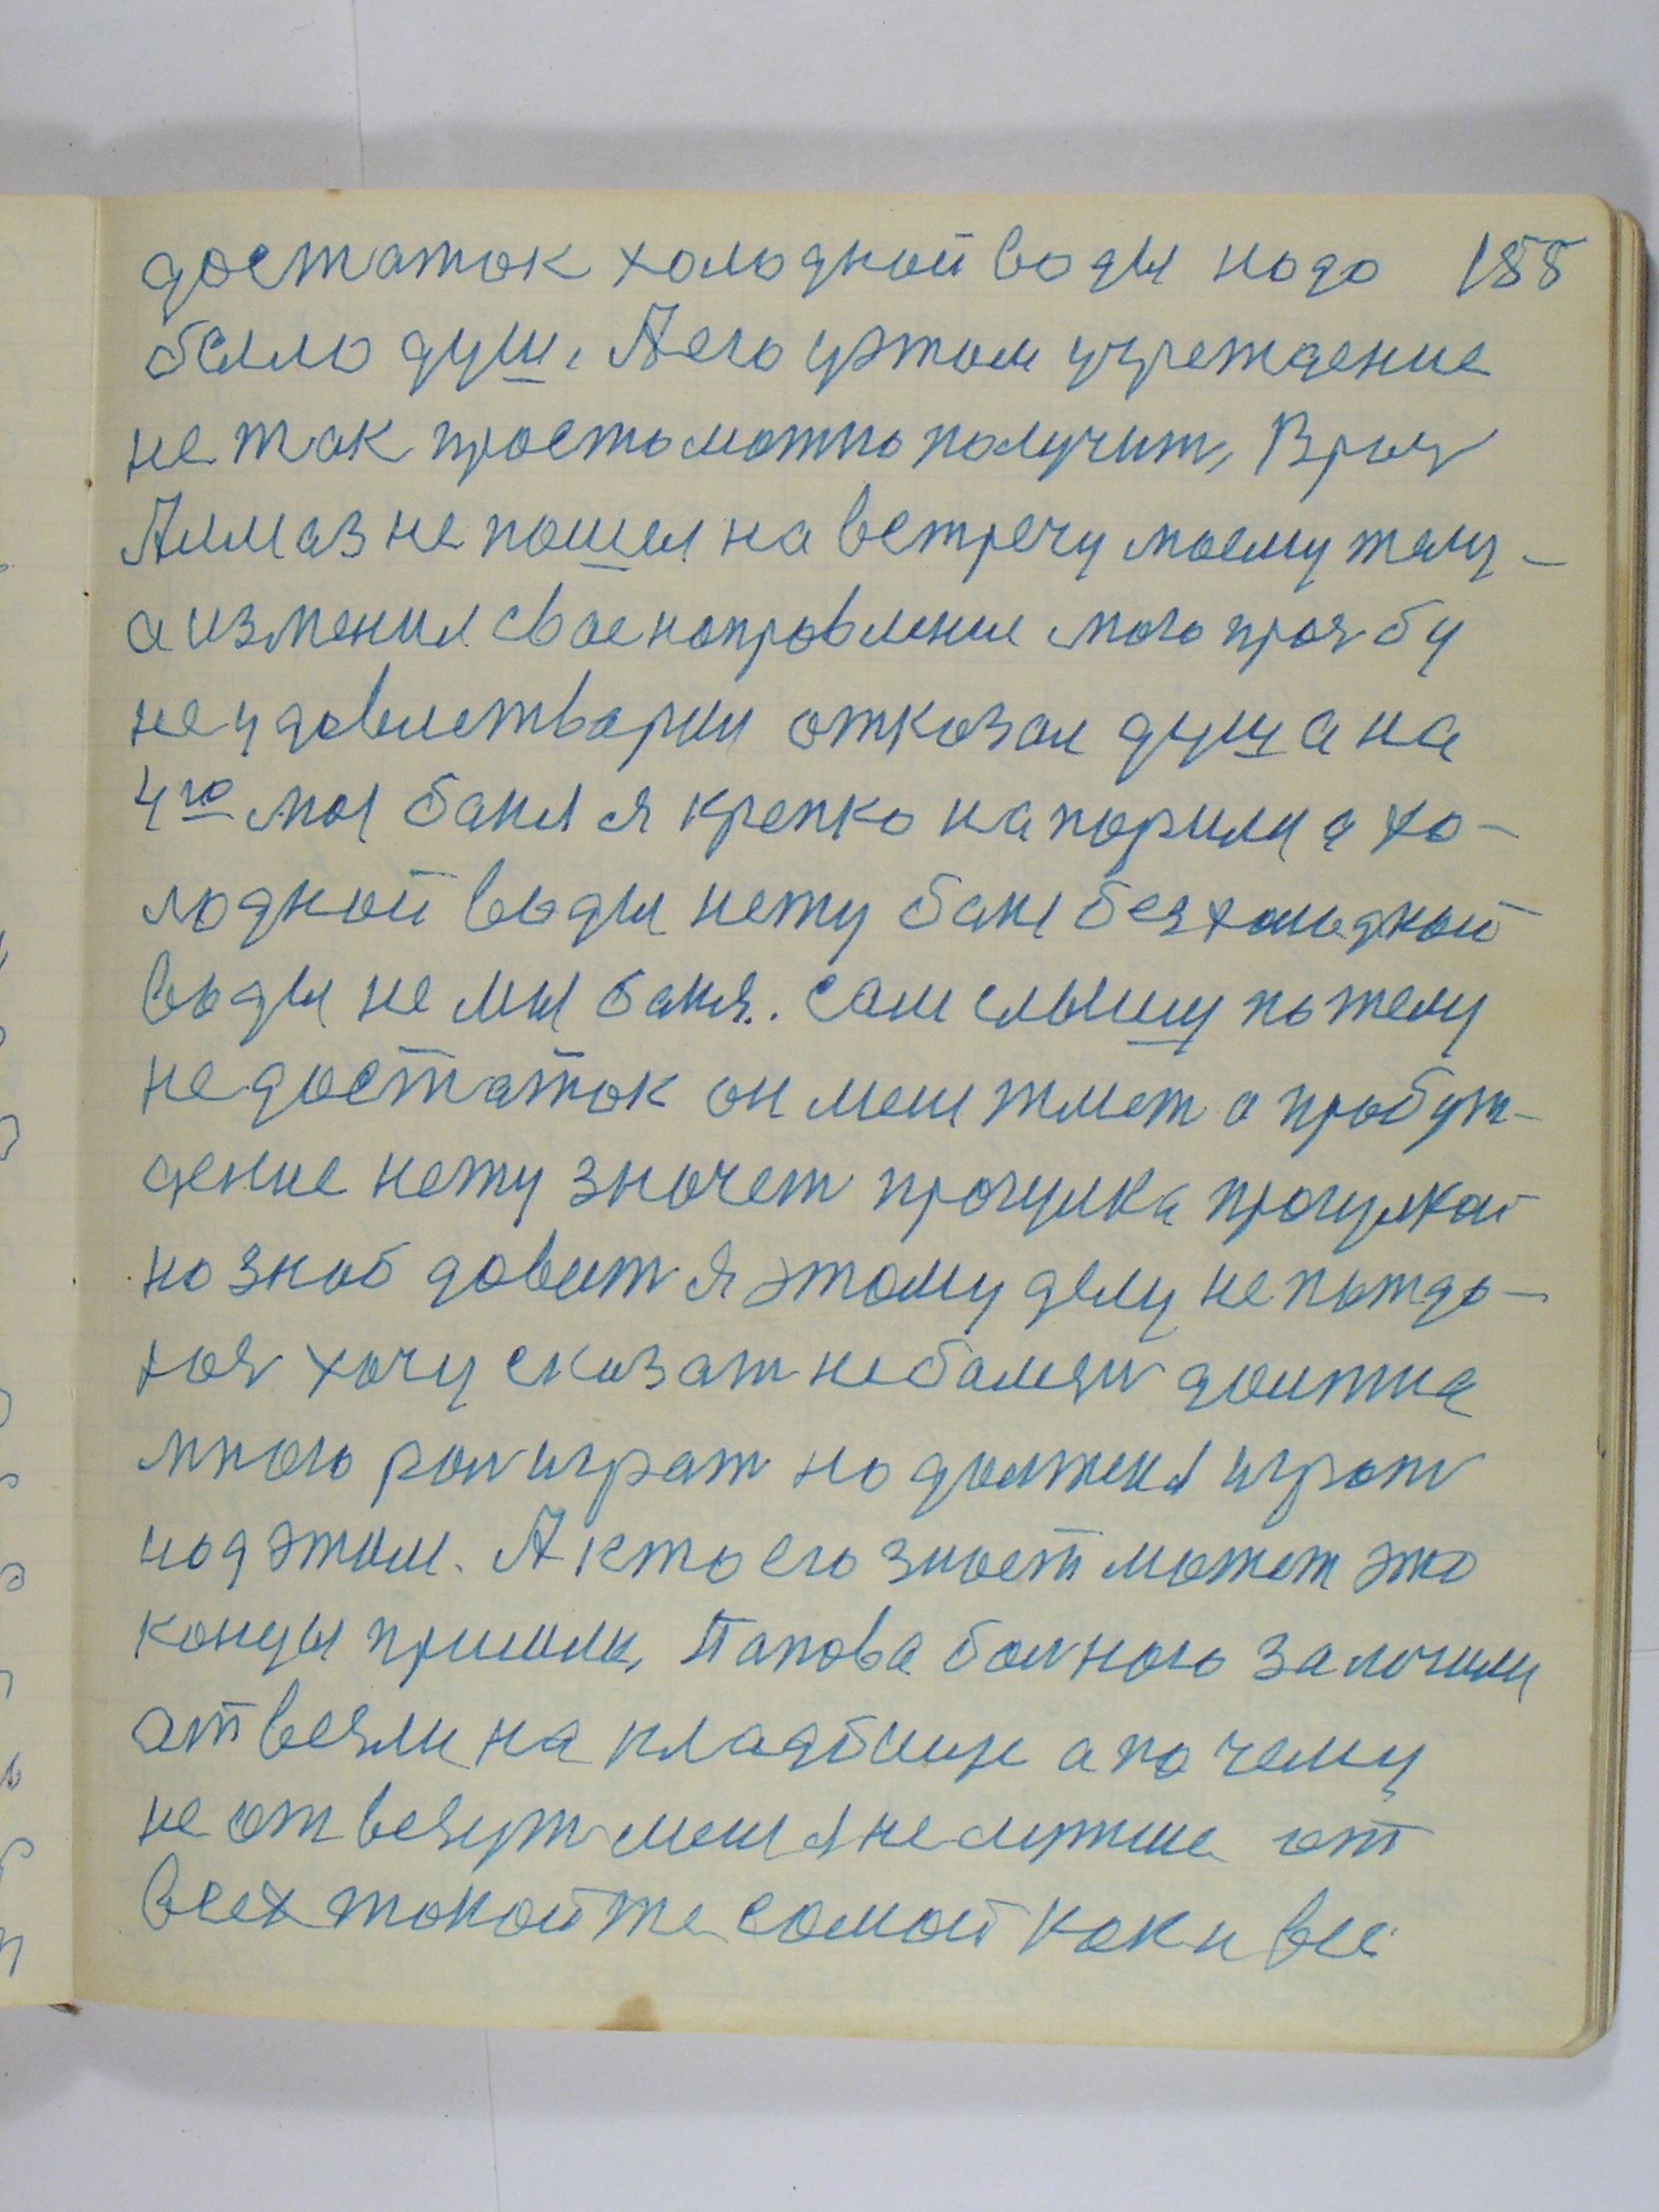 достаток холодной воды надо 188
было душ. А его уэтом учреждение
не так просто можно получит, Врач
Алмаз не пошел на встречу моему телу –
а изменил свое направление мою прозбу
не удовлетворил отказал душ а на
4го моя баня я крепко напорился а хо-
лодной воды нету баня без холодной
воды не мы баня. сам слышу по телу
недостаток он меня жмет а пробуж-
дение нету значет прогулка прогулкай
но зноб давит я этому делу не поддо-
юся хочу сказат не болезн должна
много рол играт но должен я играт
над этим. А кто его знает может это
концы пришли, Папова болного залочили
атвезли на кладбище а почему
не отвезут меня я не лутше от
всех такой же самой как и все